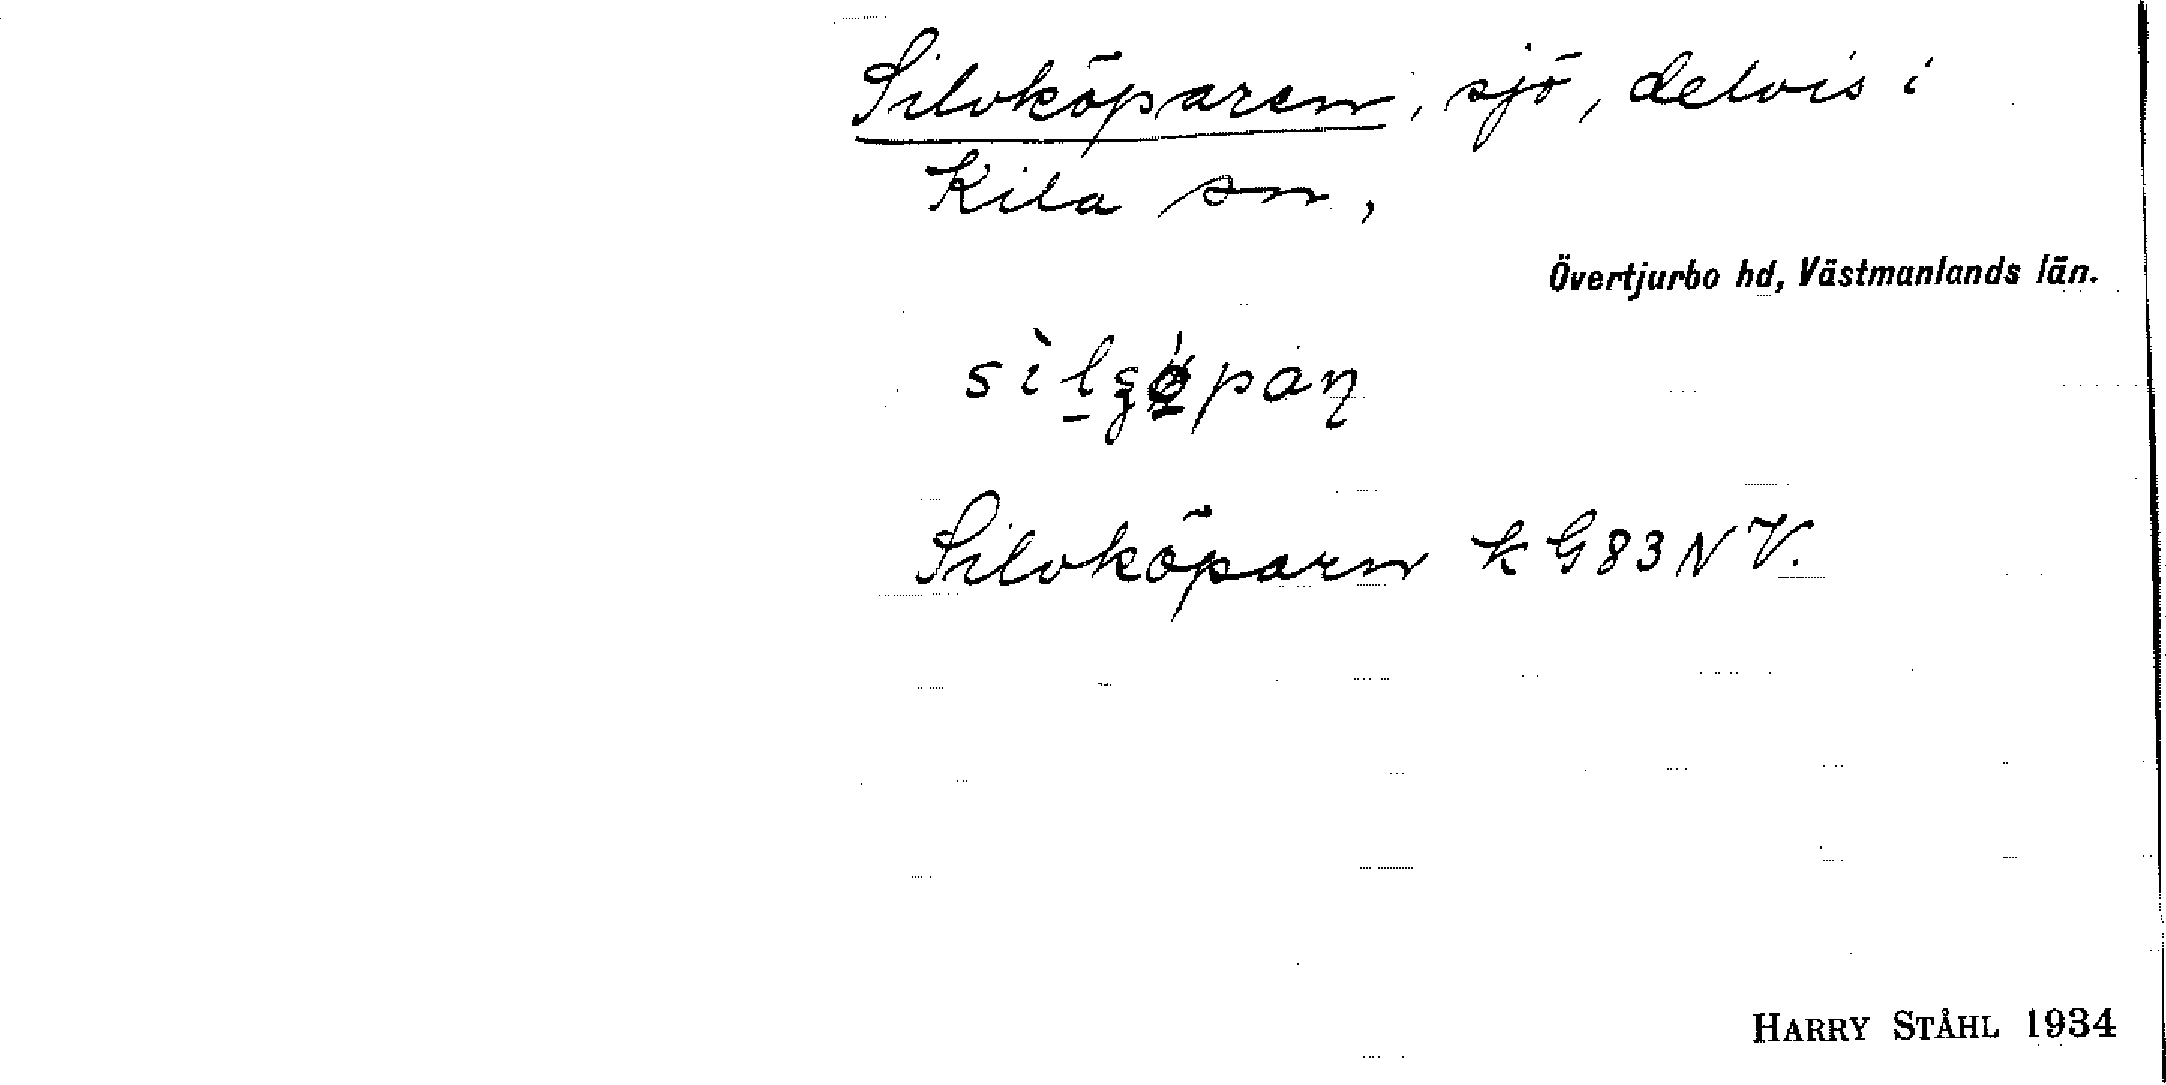 Silvköparen, sjö, delvis i
Kila sn,
Övertjurbo hd, Västmanlands län.
Silvköparn k G83NV.
HARRY STÅHL 1934